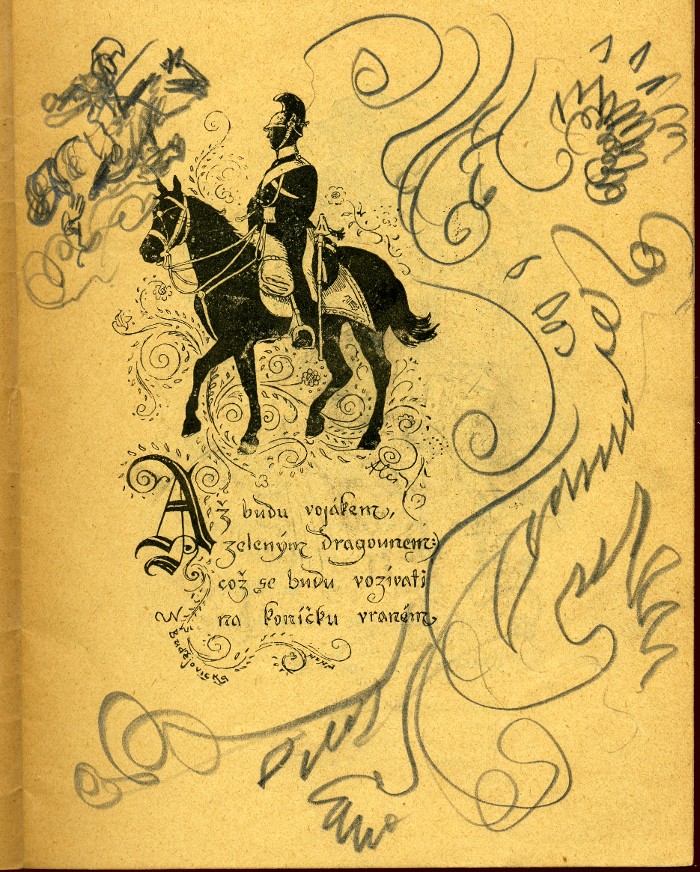 Aleš
Až budu vojákem,
zeleným dragounem:
což se budu vozívati
na koníčku vraném
Z Budějovicka